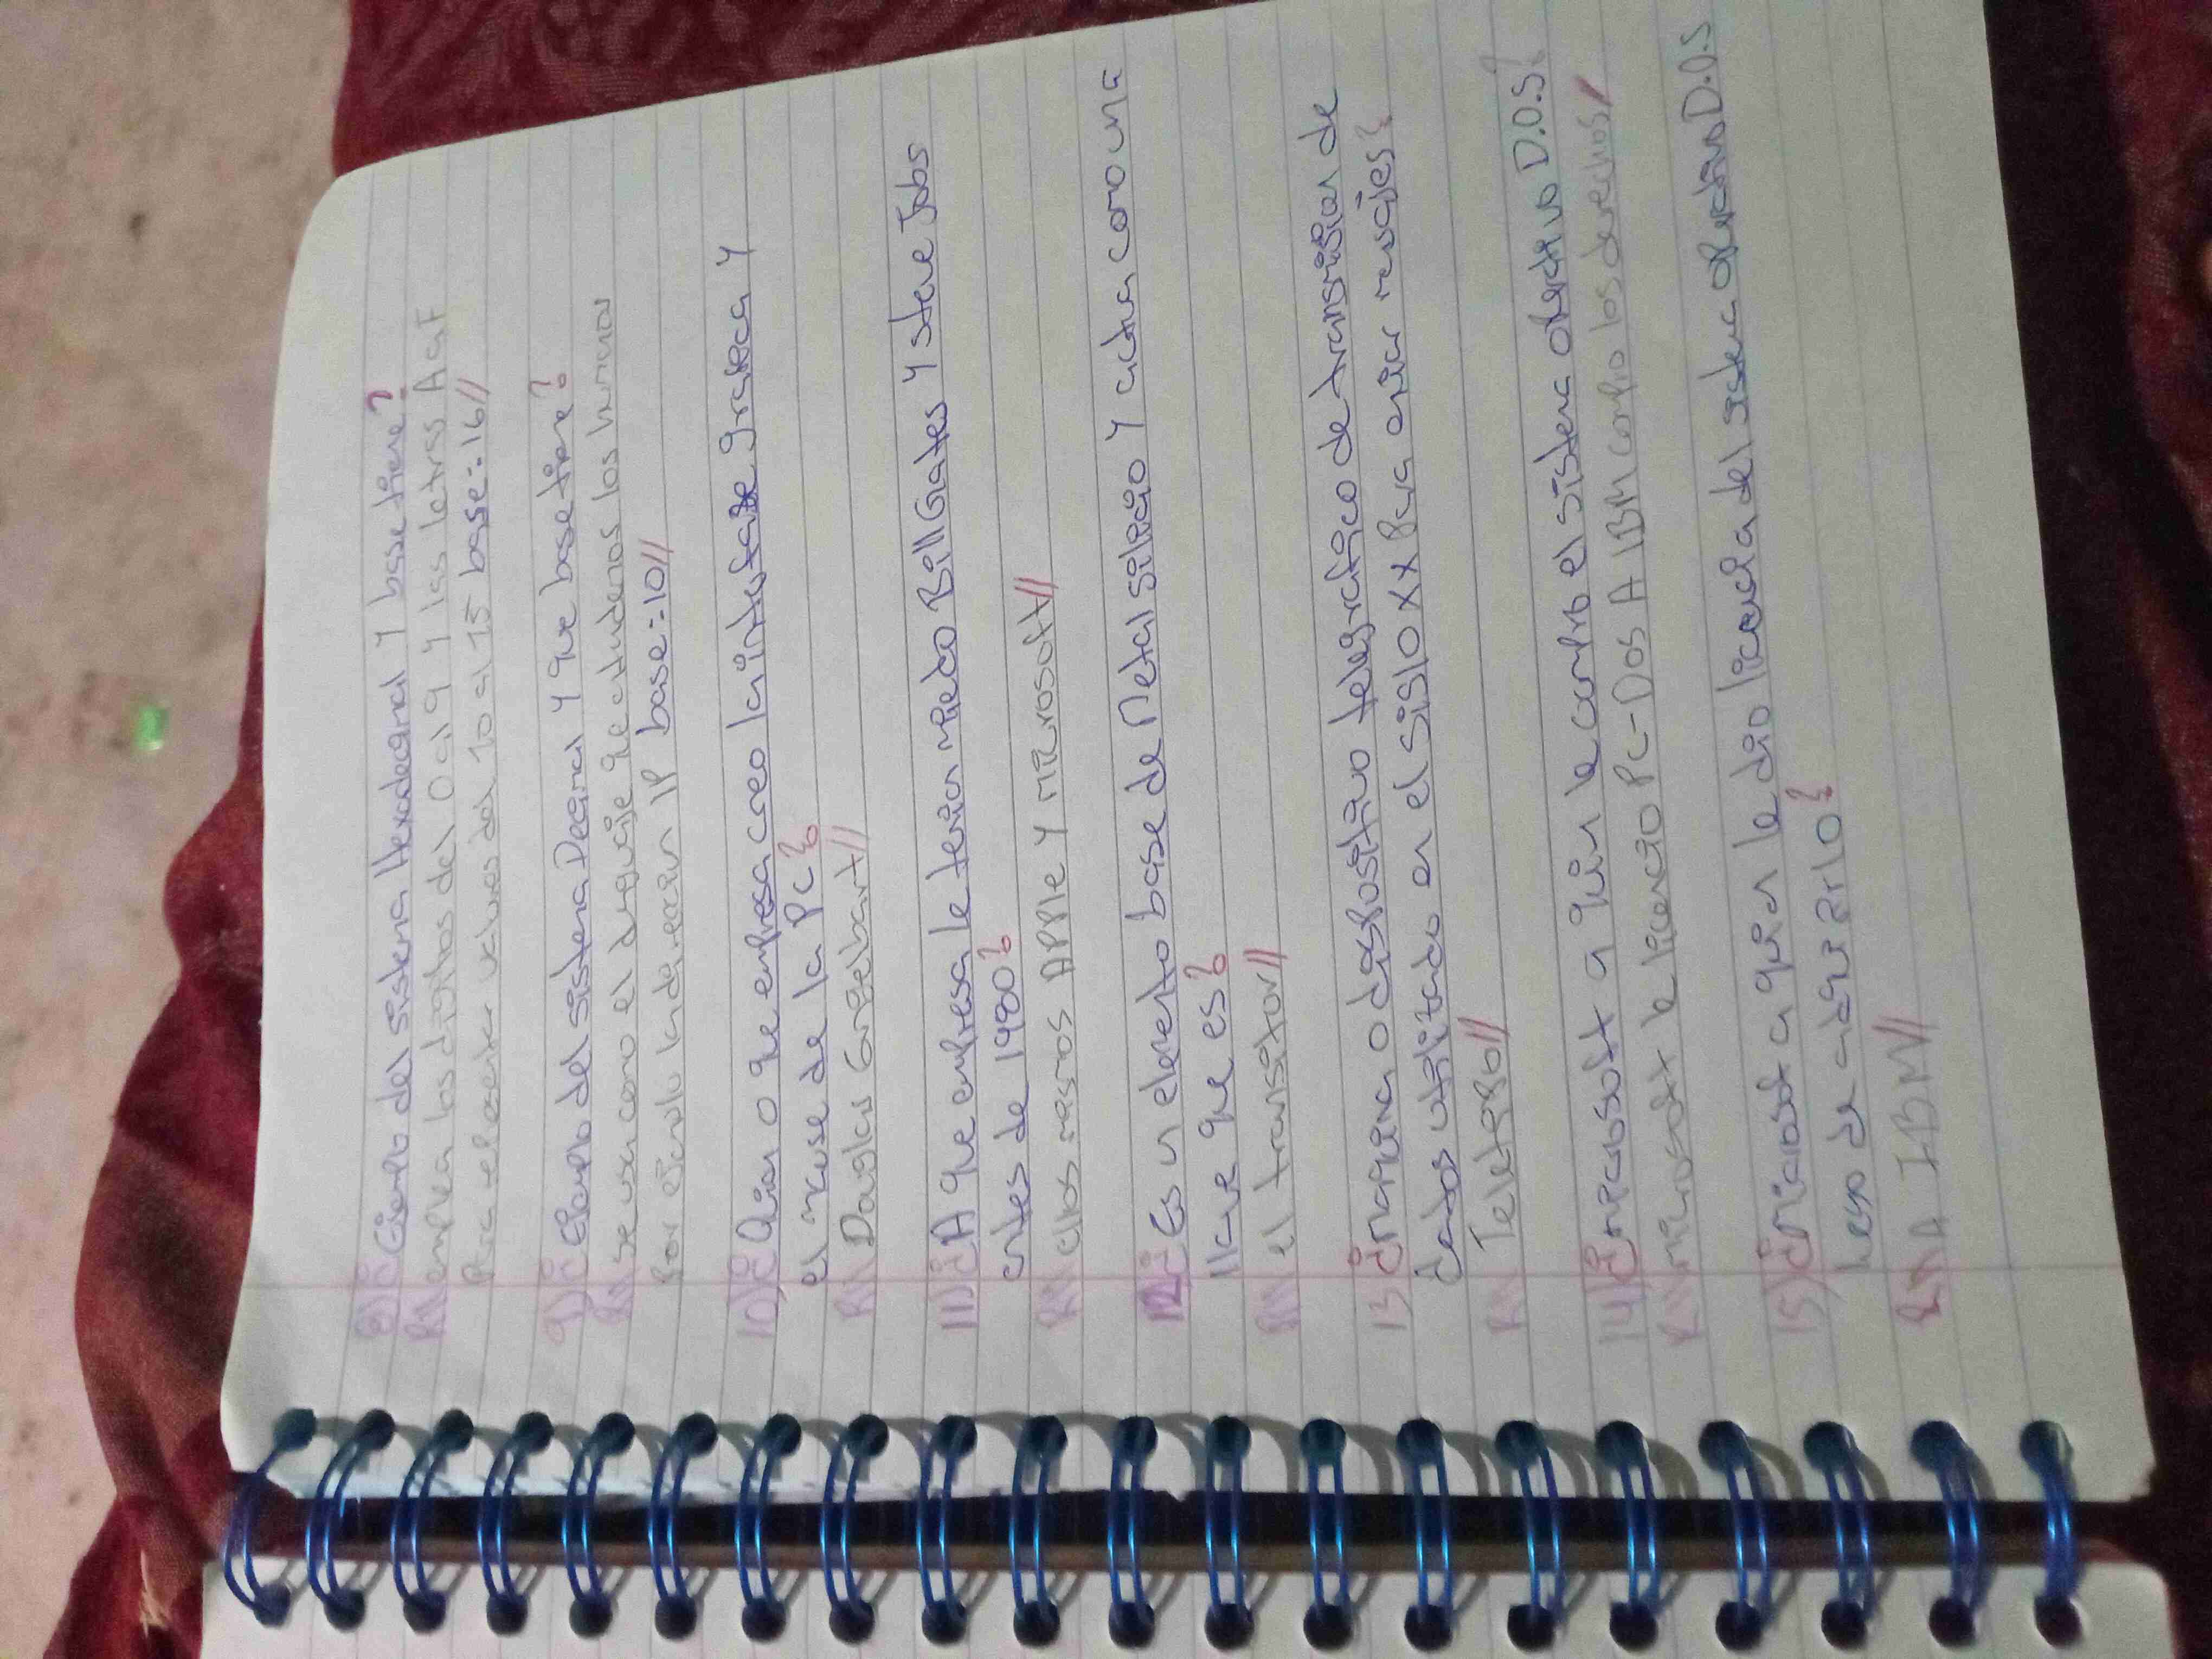 8) ¿Ejemplo del sistema Hexadecimal y base tiene?
R// emplea los digitos del 0 al 9 y las letras A a F
Para representar valores del 10 al 15 base:=16//
9) ¿ejemplo del sistema Decimal y que base tiene?
R// se usa como el lenguaje que entendemos los humanos
Por ejemplo la direccion IP base:=10//
10) ¿Quien o que empresa creo la interfaze grafica y
el mouse de la PC?
R// Douglas Engelbart//
11) ¿A que empresa le tenian miedo Bill Gates y steve Jobs
antes de 1980?
R// ellos mesmos APPle y microsoft//
12) ¿Es un elemento base de Metal silicio y actua como una
llave que es?
R// el transitor//
13) ¿maquina o dispositivo telegrafico de transmision de
datos utilitado en el siglo XX Para enviar mensajes?
R// Teletipo//
14) ¿microsoft a quien le compro el sistema operativo D.O.S?
R// microsoft le licencio PC-DOS A IBM compro los derechos/
15) ¿microsoft a quien le dio licencia del sistema operativo D.O.S
luego de adquirirlo?
R// A IBM//